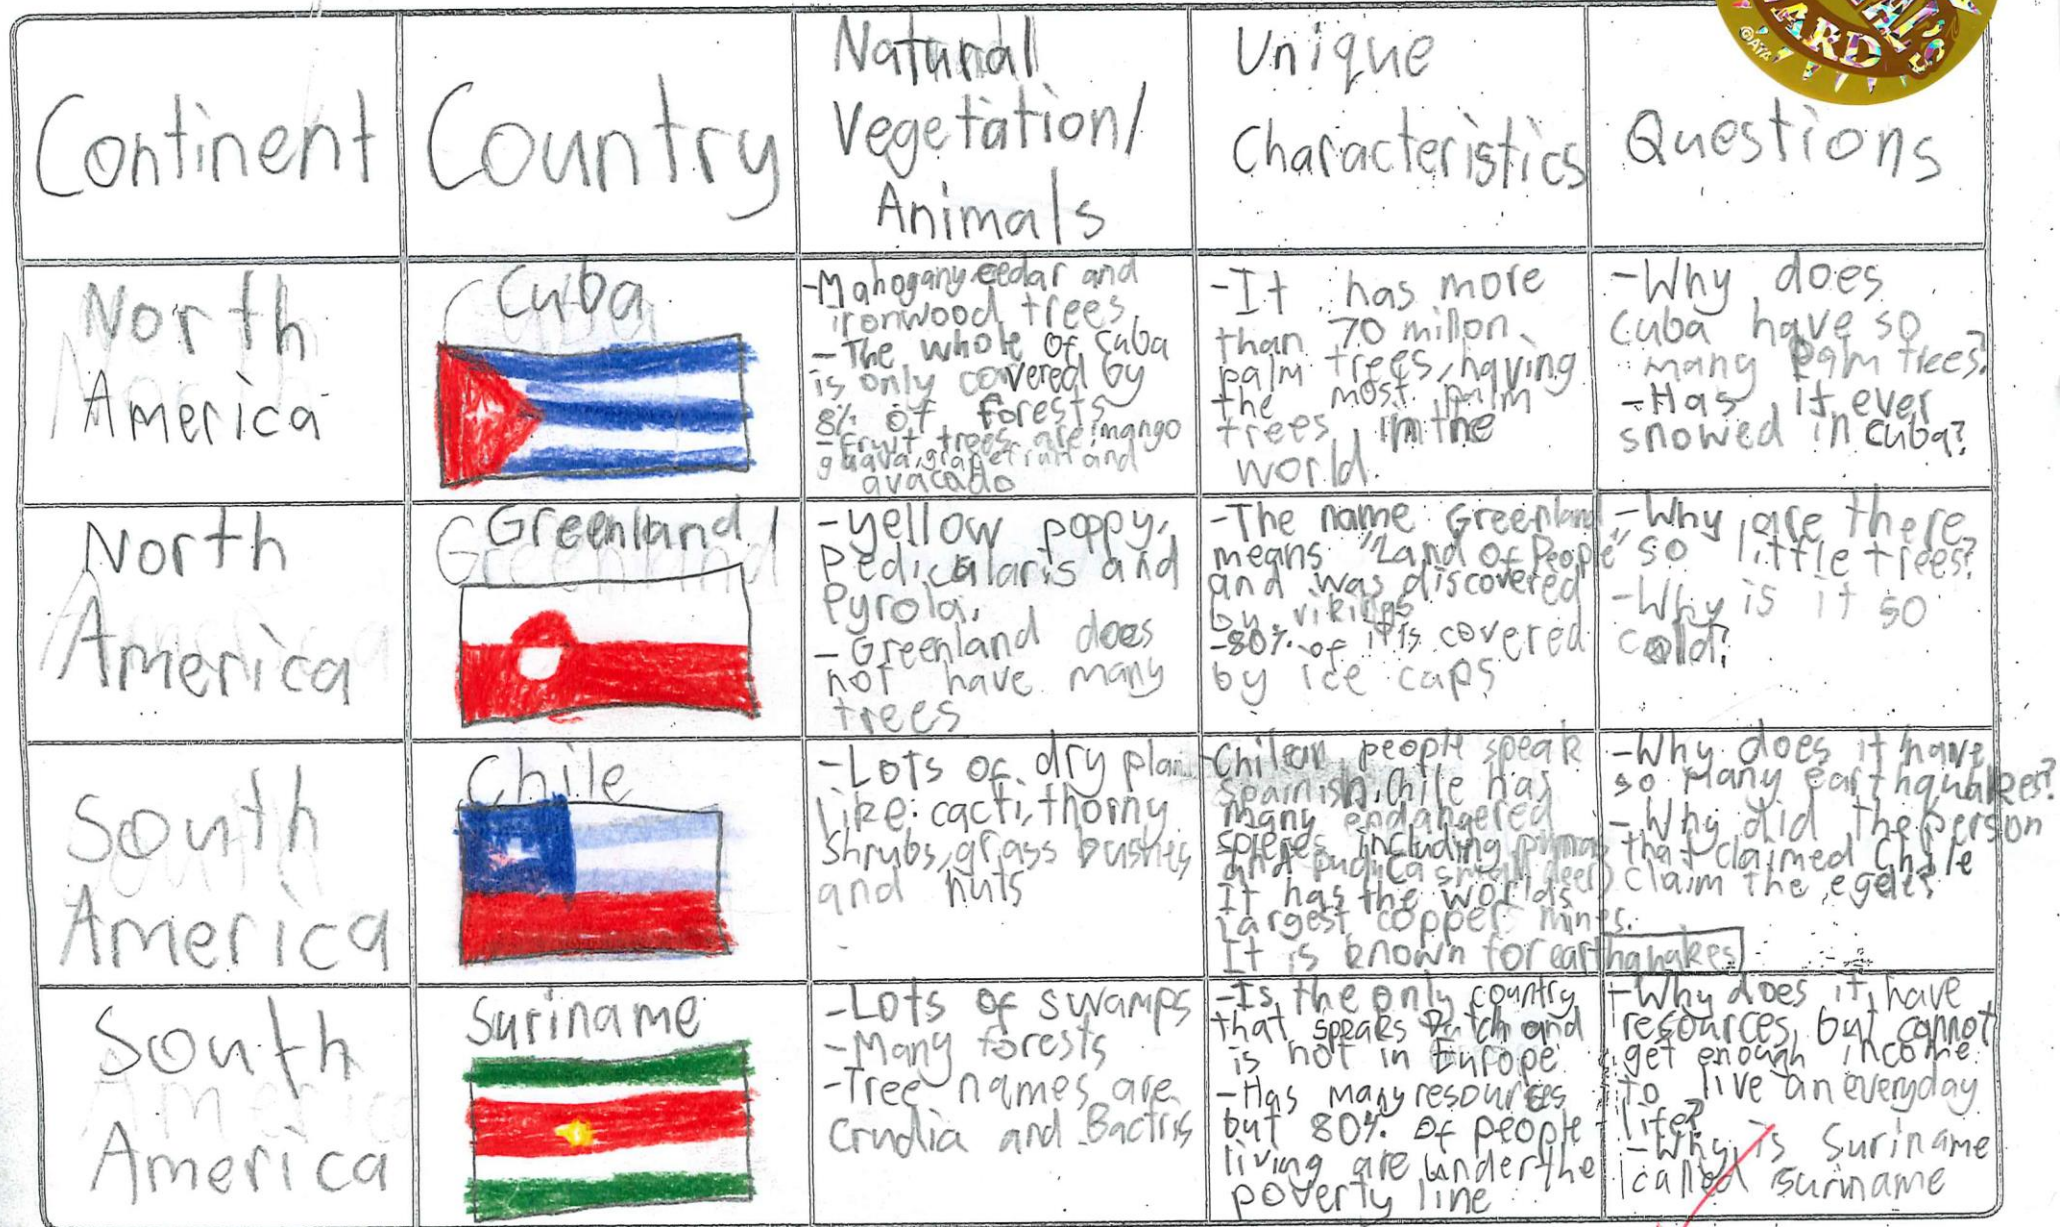 Continent
Country
Natural
Vegetation/
Animals
Unique
Characteristics
Questions
ARD
©ATA
North
America
Cuba
-Mahogany cedar and
ironwood trees
-The whole of Cuba
is only covered by
8% of forests
-Fruit trees are: mango
guava, grapefruit and
avacado
-It has more
than 70 millon
palm trees, having
the most palm
trees in the
world.
-Why does
Cuba have so
many palm trees?
-Has it ever
snowed in Cuba?
North
America
Greenland
-yellow poppy,
Pedicularis and
Pyrola.
-Greenland does
not have many
trees
-The name Greenland
means "Land of People"
and was discovered
by vikings
-80% of it is covered
by ice caps
-Why are there
so little trees?
-Why is it so
cold?
South
America
Chile
-Lots of dry plan
like: cacti, thorny
Shrubs, grass bushes
and nuts
-Chilean people speak
Spainish. Chile has
many endangered
including pumas
and pudu (a small deer)
It has the worlds
largest copper mines.
It is known for earthquakes
-Why does it have
so many earthquakes?
-Why did the person
that claimed Chile
claim the
South
America
Suriname
-Lots of swamps
-Many forests
-Tree names are
Crudia and Bactris
-Is the only country
that speaks Dutch and
is not in Europe
-Has many resources
but 80% of people
living are under the
poverty line
-Why does it have
resources, but cannot
get enough income
to live an everyday
life?
-Why is Suriname
called Suriname